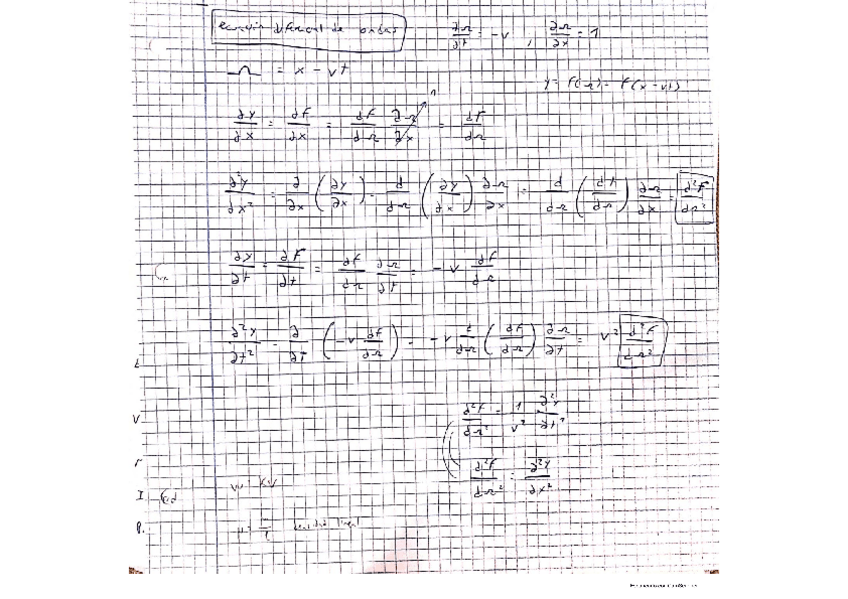 ecuación diferencial de ondas
∂Ω/∂t = -v , ∂Ω/∂x = 1
Ω = x - vt
y = f(Ω) = f(x - vt)
∂y/∂x = ∂f/∂x = df/dΩ ∂Ω/∂x 1 = df/dΩ
∂²y/∂x² = ∂/∂x (∂y/∂x) = d/dΩ (∂y/∂x) ∂Ω/∂x = d/dΩ (df/dΩ) ∂Ω/∂x = d²f/dΩ²
∂y/∂t = ∂f/∂t = df/dΩ ∂Ω/∂t = -v df/dΩ
∂²y/∂t² = ∂/∂t (-v df/dΩ) = -v d/dΩ (df/dΩ) ∂Ω/∂t = v² d²f/dΩ²
d²f/dΩ² = 1/v² ∂²y/∂t²
d²f/dΩ² = ∂²y/∂x²